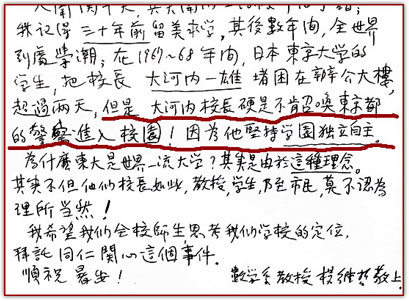 我記得三十年前留美求学,其後數年间,全世界
到處學潮;在1967~68年间,日本東京大学的
学生,把校長 大河内一雄 堵困在辦公大樓,
超過兩天,但是 大河内校長硬是不肯召唤東京都
的警察進入校園!因為他堅持学園独立自主.
為什麼東大是世界一流大学?其实是由於這種理念。
其实不但他们校長如此,教授,学生,乃至市民,莫不認為
理所当然!
我希望我们全校師生思考我们学校的定位.
拜託同仁関心這個事件.
順祝 暑安! 數学系教授 楊維哲敬上.